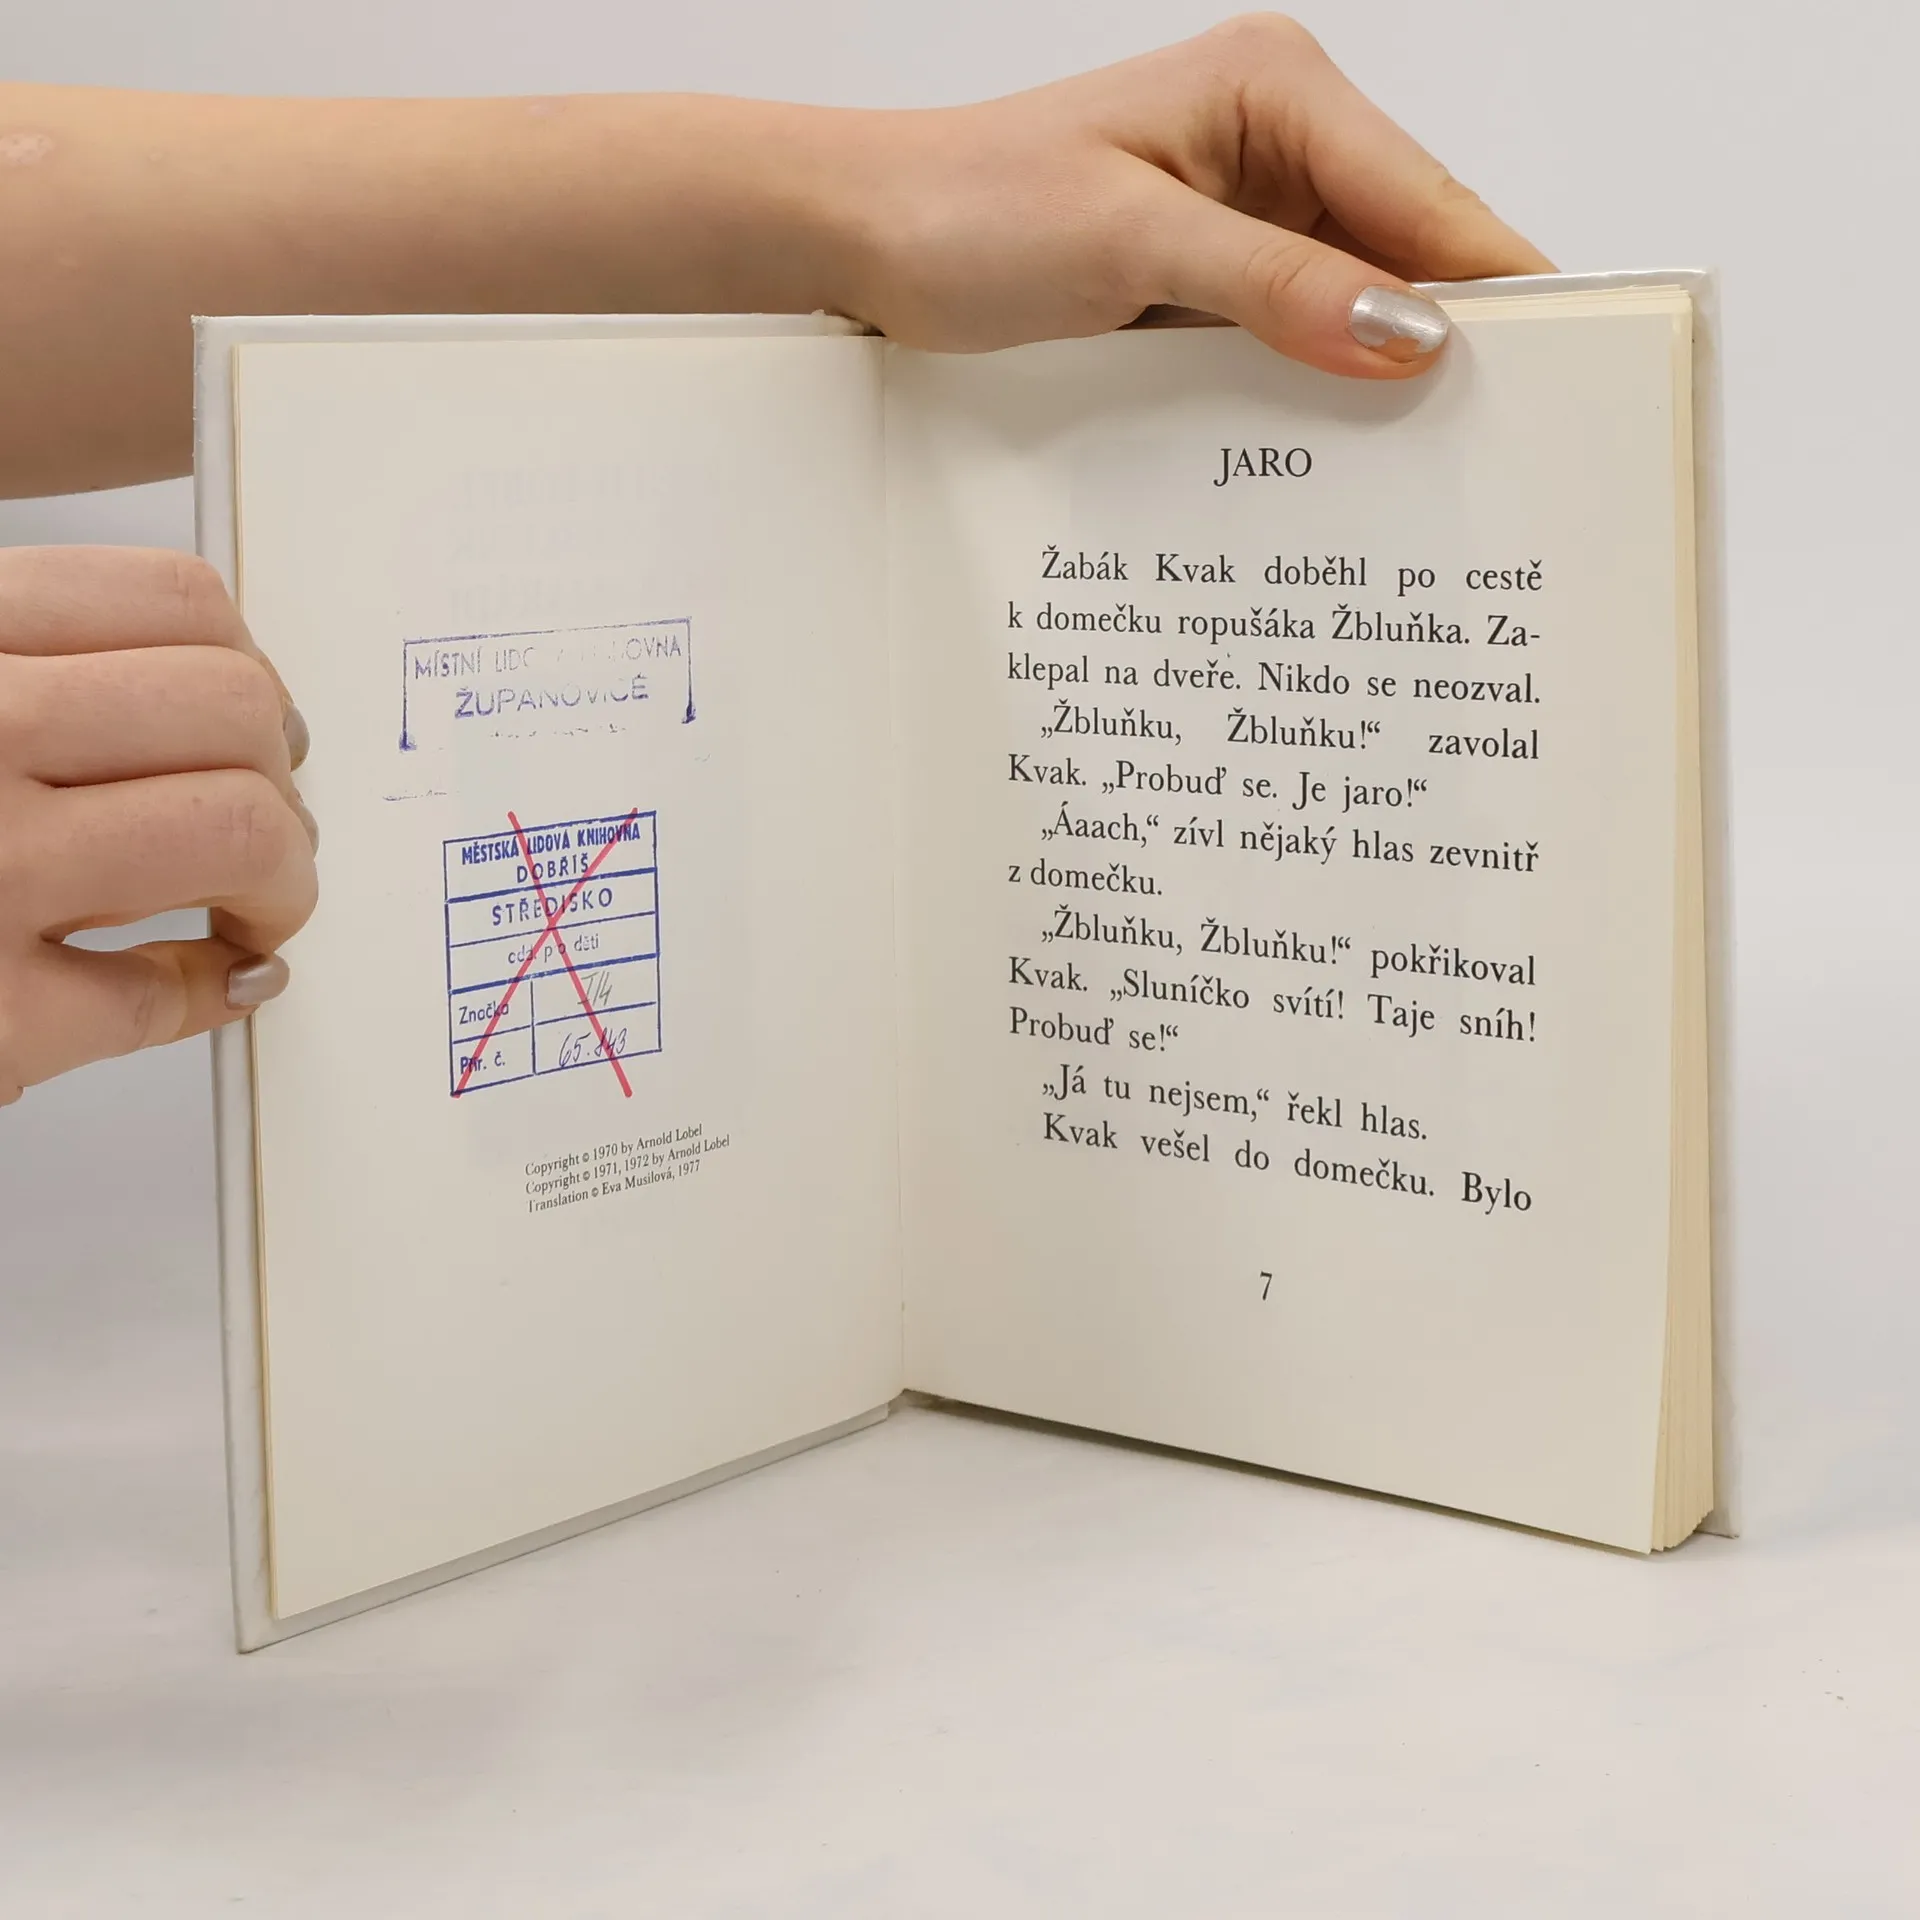 MÍSTNÍ
ŽUPANOVICE
MĚSTSKÁ LIDOVÁ KNIHOVNA
DOBŘÍŠ
STŘEDISKO
odd. pro děti
Značka
Přír. č.
Copyright © 1970 by Arnold Lobel
Copyright © 1971, 1972 by Arnold Lobel
Translation © Eva Musilová, 1977
JARO
Žabák Kvak doběhl po cestě
k domečku ropušáka Žbluňka. Za-
klepal na dveře. Nikdo se neozval.
„Žbluňku, Žbluňku!“ zavolal
Kvak. „Probuď se. Je jaro!“
„Ááach,“ zívl nějaký hlas zevnitř
z domečku.
„Žbluňku, Žbluňku!“ pokřikoval
Kvak. „Sluníčko svítí! Taje sníh!
Probuď se!“
„Já tu nejsem,“ řekl hlas.
Kvak vešel do domečku. Bylo
7